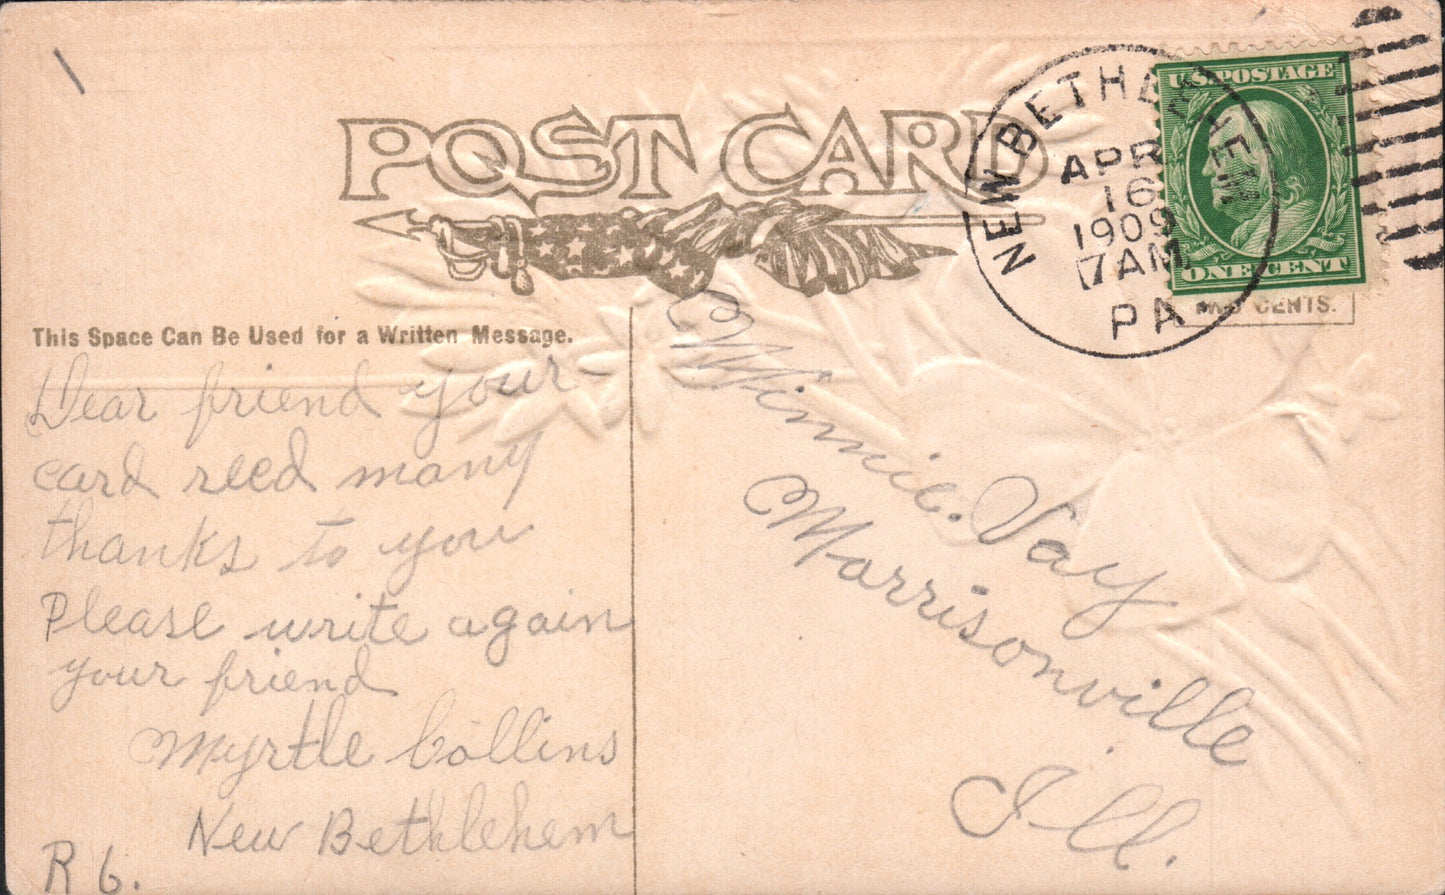 POST CARD
NEW BETHLEHEM
APR
16
1909
7AM
PA
U.S. POSTAGE
ONE CENT
CENTS.
This Space Can Be Used for a Written Message.
Dear friend your
card recd many
thanks to you
Please write again
your friend
Myrtle Collins
New Bethlehem
R 6.
Minnie. Vay
Morrisonville
Ill.